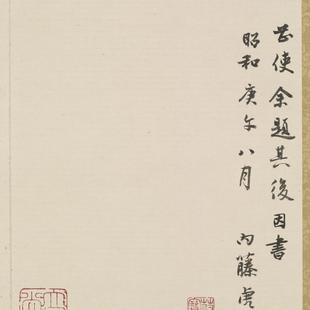 使余題其後因書
昭和庚午八月
內藤虎